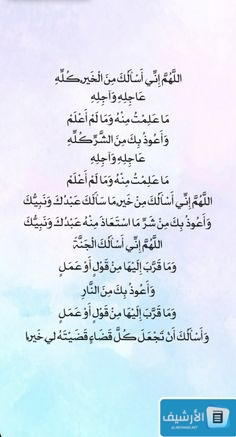 اللَّهُمَّ إِنِّي أَسْأَلُكَ مِنَ الْخَيْرِ كُلِّهِ
عَاجِلِهِ وَآجِلِهِ
مَا عَلِمْتُ مِنْهُ وَمَا لَمْ أَعْلَمْ
وَأَعُوذُ بِكَ مِنَ الشَّرِّ كُلِّهِ
عَاجِلِهِ وَآجِلِهِ
مَا عَلِمْتُ مِنْهُ وَمَا لَمْ أَعْلَمْ
اللَّهُمَّ إِنِّي أَسْأَلُكَ مِنْ خَيْرِ مَا سَأَلَكَ عَبْدُكَ وَنَبِيُّكَ
وَأَعُوذُ بِكَ مِنْ شَرِّ مَا اسْتَعَاذَ مِنْهُ عَبْدُكَ وَنَبِيُّكَ
اللَّهُمَّ إِنِّي أَسْأَلُكَ الْجَنَّةَ
وَمَا قَرَّبَ إِلَيْهَا مِنْ قَوْلٍ أَوْ عَمَلٍ
وَأَعُوذُ بِكَ مِنَ النَّارِ
وَمَا قَرَّبَ إِلَيْهَا مِنْ قَوْلٍ أَوْ عَمَلٍ
وَأَسْأَلُكَ أَنْ تَجْعَلَ كُلَّ قَضَاءٍ قَضَيْتَهُ لِي خَيْرًا
الأرشيف